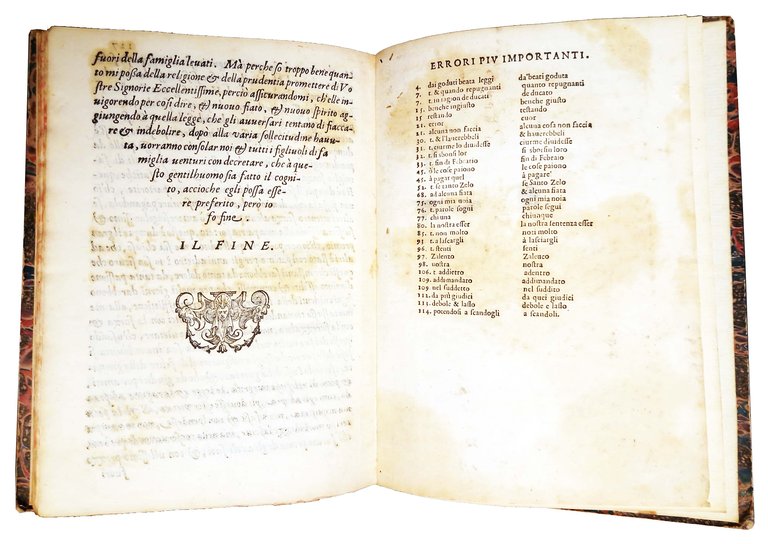 fuori della famiglia leuati. Mà perche sò troppo bene quan-
to mi possa della religione & della prudentia promettere di Vo
stre Signorie Eccellentissime, perciò assicurandomi, ch'elle in
uigorendo per così dire, & nuouo fiato, & nuouo spirito ag-
giungendo à quella legge, che gli auuersari tentano di fiacca-
re & indebolire, dopò alla varia sollecitudine hauu-
ta, uorranno consolar noi & tutti i figliuoli di fa
miglia uenturi con decretare, che à que-
sto gentilhuomo sia fatto il cogni-
to, accioche egli possa esse-
re preferito, però io
fo fine.
IL FINE.
ERRORI PIV IMPORTANTI.
4. dai goduti beata leggi da'beati goduta
7. & quando repugnanti quanto repugnanti
7. t. in ragion de ducati de ducato
15. benche ingiusto benche giusto
15 restando testando
21. error cuor
21. alcuna non faccia alcuna cosa non faccia
30. t. & l'hauerebbeli & hauerebbeli
31. t. ciurme lo diuidesse ciurme diuidesse
32. t. si sbonsi lor si sbosso loro
53. t. fin di Febraio di Febraio
45. ò le cose paiono cose paiono
52. à pagar quel à pagare
52. t. se santo Zelo se Santo Zelo
68. ad alcuna fiata & alcuna fiata
75. ogni mia noia ogni mia noia
76. t. parole segni parole segui
77. chi una chiunque
80. la nostra esser la nostra sentenza esser
85. t. non molto noti molto
91 t. a lasciargli à lasciargli
96. t. stenti senti
97. Zilento Zalenco
98. uostra nostra
106. t addietro adentro
109. addimandato addimandato
109 nel suddetto nel suddito
112. da più giudici da quei giudici
113. debole & lasso debole e lasso
114. potendosi a scandogli a scandoli.